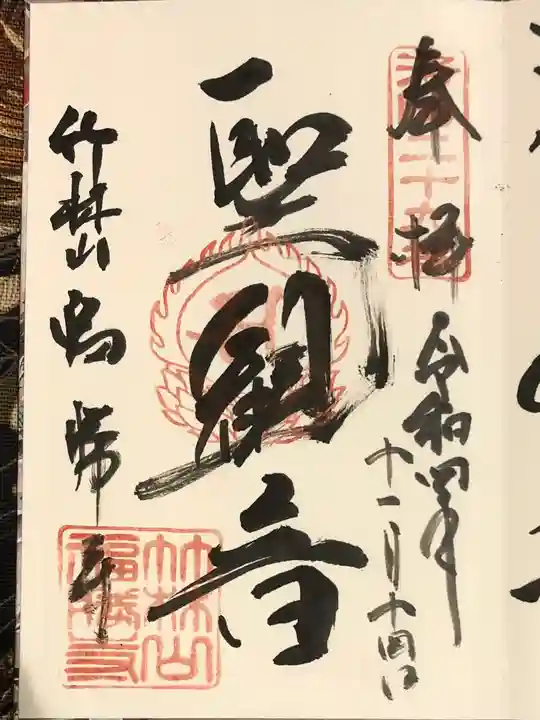 奉拝
令和四年
十一月十四日
聖観音
竹林山福勝寺
竹林山
福勝寺